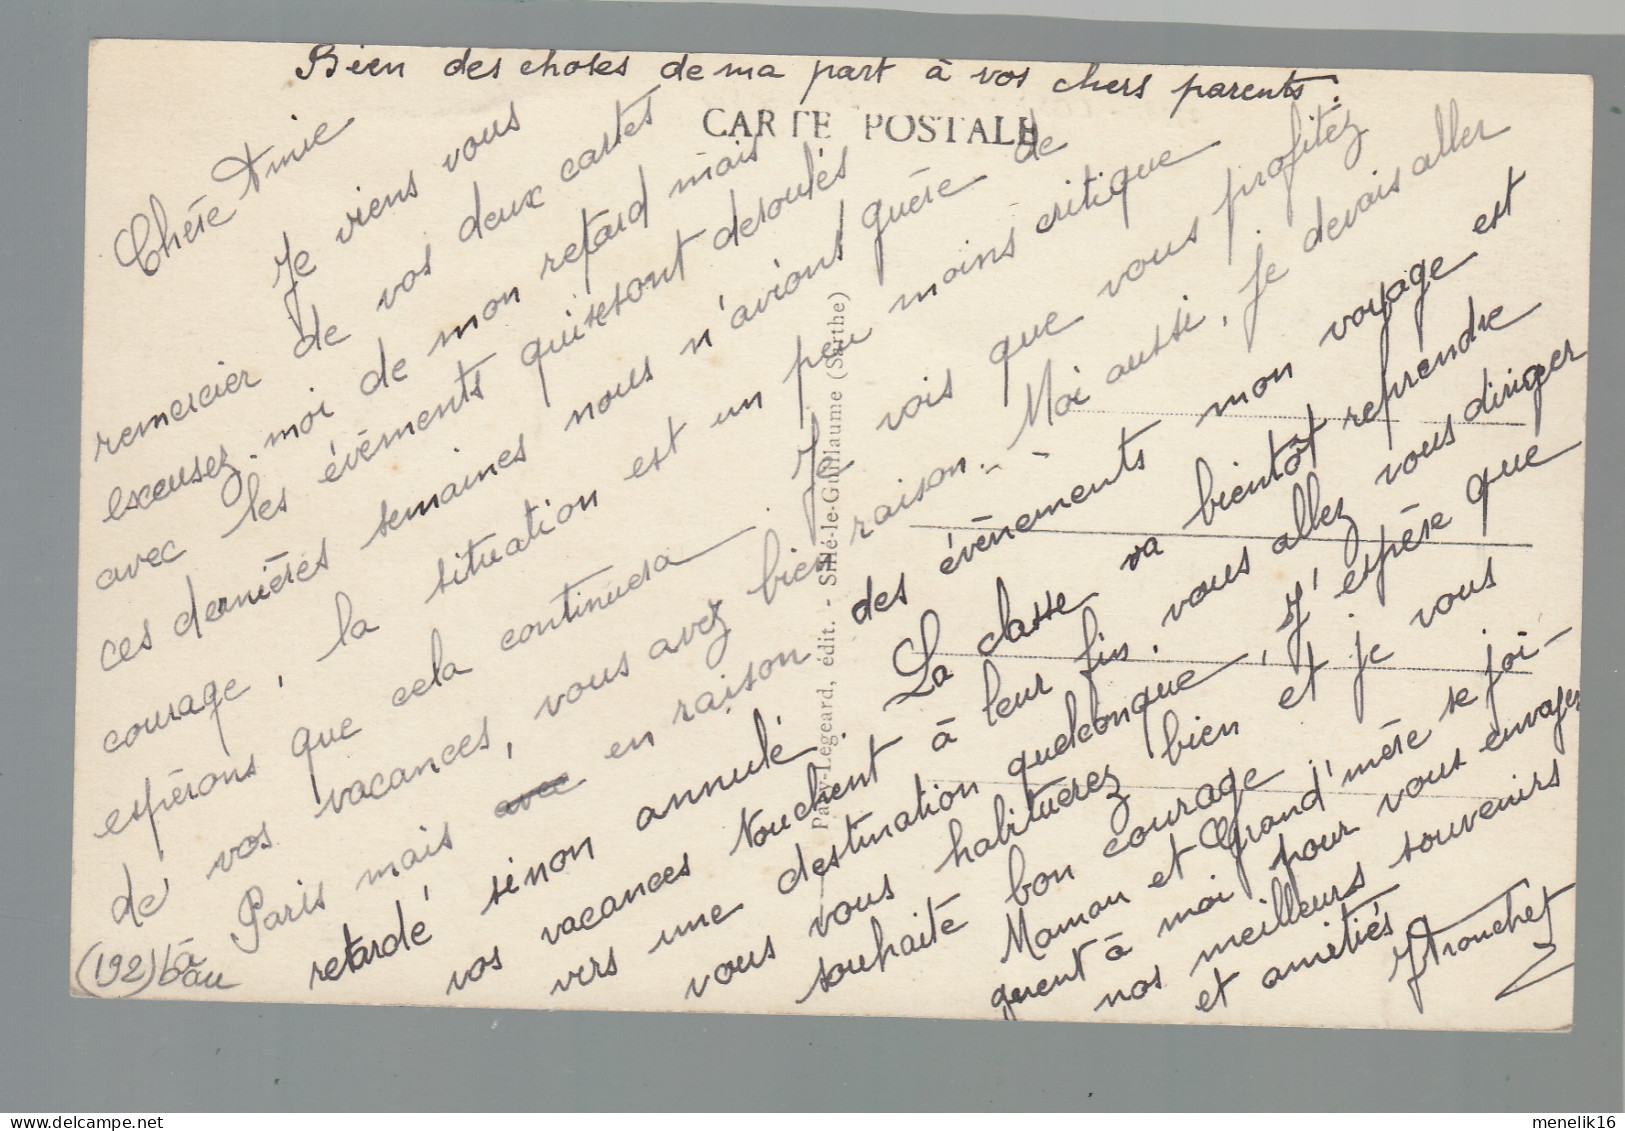 Bien des choses de ma part à vos chers parents.
CARTE POSTALE
Chère Amie
Je viens vous
remercier de vos deux cartes
excusez-moi de mon retard mais
avec les évèments qui se sont déroulés
ces dernières semaines nous n'avions guère de
courage, la situation est un peu moins critique
espérons que cela continuera. Je vois que vous profitez
de vos vacances, vous avez bien raison. Moi aussi, je devais aller
à Paris mais avec en raison des évènements mon voyage est
retardé sinon annulé. La classe va bientôt reprendre
vos vacances touchent à leur fin. vous allez vous diriger
vers une destination quelconque, J'espère que
vous vous habituerez bien et je vous
souhaite bon courage
Maman et Grand'mère se joi-
gnent à moi pour vous envoyer
nos meilleurs souvenirs
et amitiés
JTronchet
Pavy-Legeard, édit. - Sillé-le-Guillaume (Sarthe)
(192)
menelik16